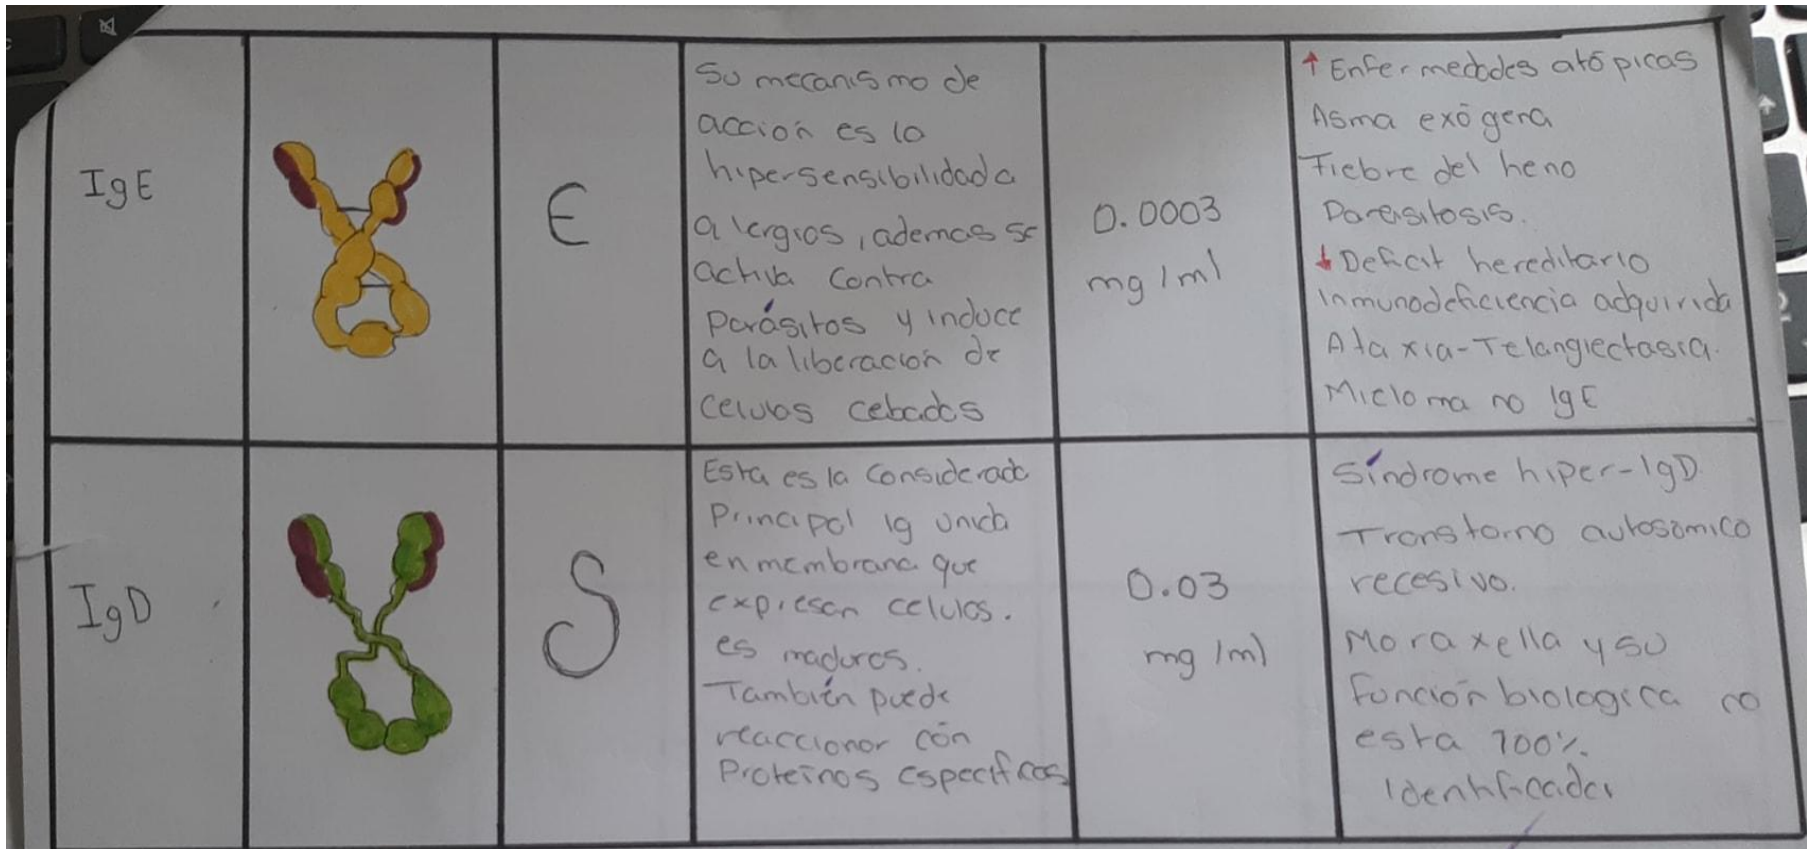 IgE
E
Su mecanismo de
acción es la
hipersensibilidad a
alergias, ademas se
activa contra
Parásitos y induce
a la liberación de
celulas cebadas
0.0003
mg/ml
↑ Enfermedades atópicas
Asma exógena
Fiebre del heno
Parasitosis.
↓ Deficit hereditario
Inmunodeficiencia adquirida
Ataxia-Telangiectasia.
Mieloma no IgE
IgD
S
Esta es la considerada
Principal ig unida
en membrana que
expresan celulas.
es maduras.
También puede
reaccionar con
Proteínas especificas
0.03
mg/ml
Síndrome hiper-IgD.
Transtorno autosomico
recesivo.
Moraxella y su
función biologica no
esta 100%
Identificada